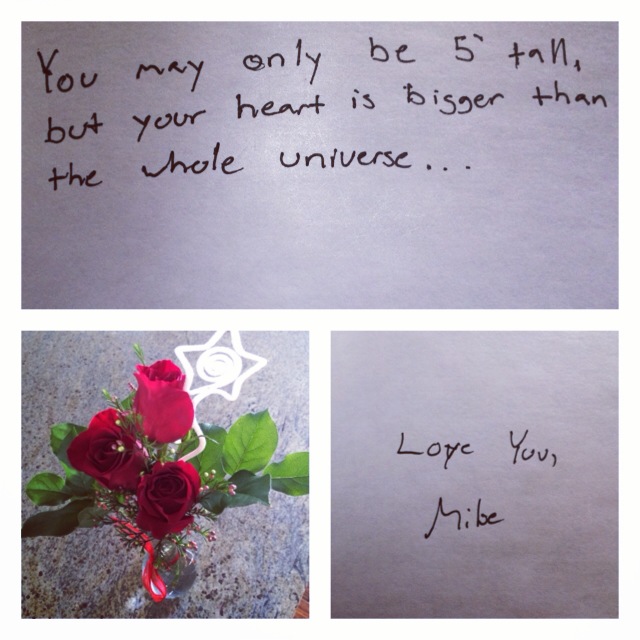 You may only be 5' tall,
but your heart is bigger than
the whole universe...
Love You,
Mike